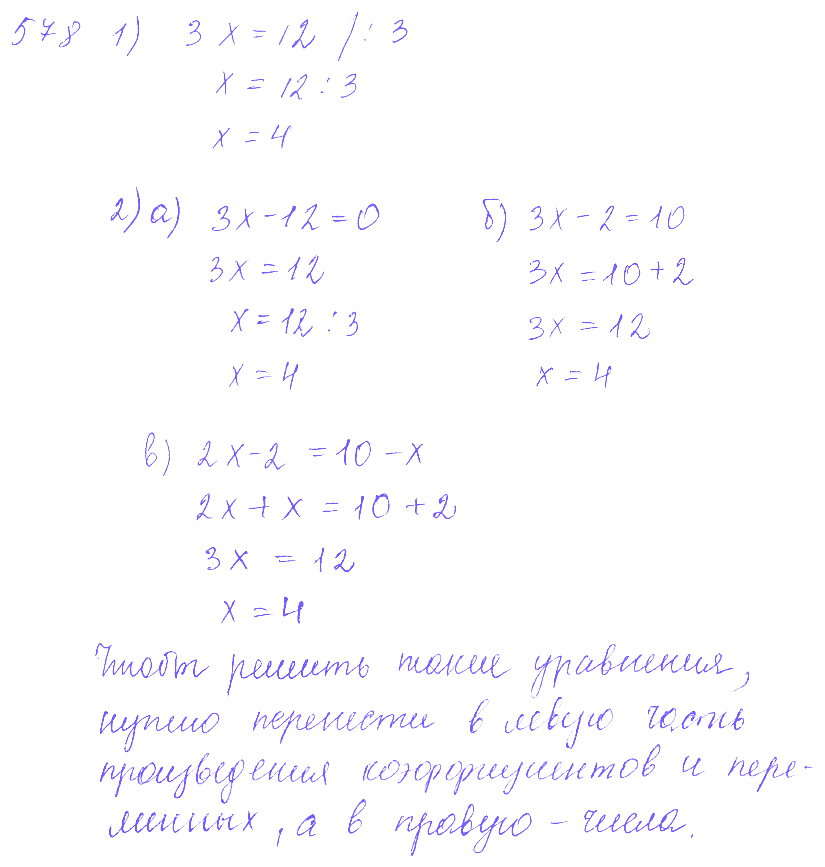 578 1) 3x = 12 /: 3
x = 12 : 3
x = 4
2) а) 3x - 12 = 0
3x = 12
x = 12 : 3
x = 4
б) 3x - 2 = 10
3x = 10 + 2
3x = 12
x = 4
в) 2x - 2 = 10 - x
2x + x = 10 + 2
3x = 12
x = 4
Чтобы решить такие уравнения,
нужно перенести в левую часть
произведения коэффициентов и пере-
менных, а в правую - числа.